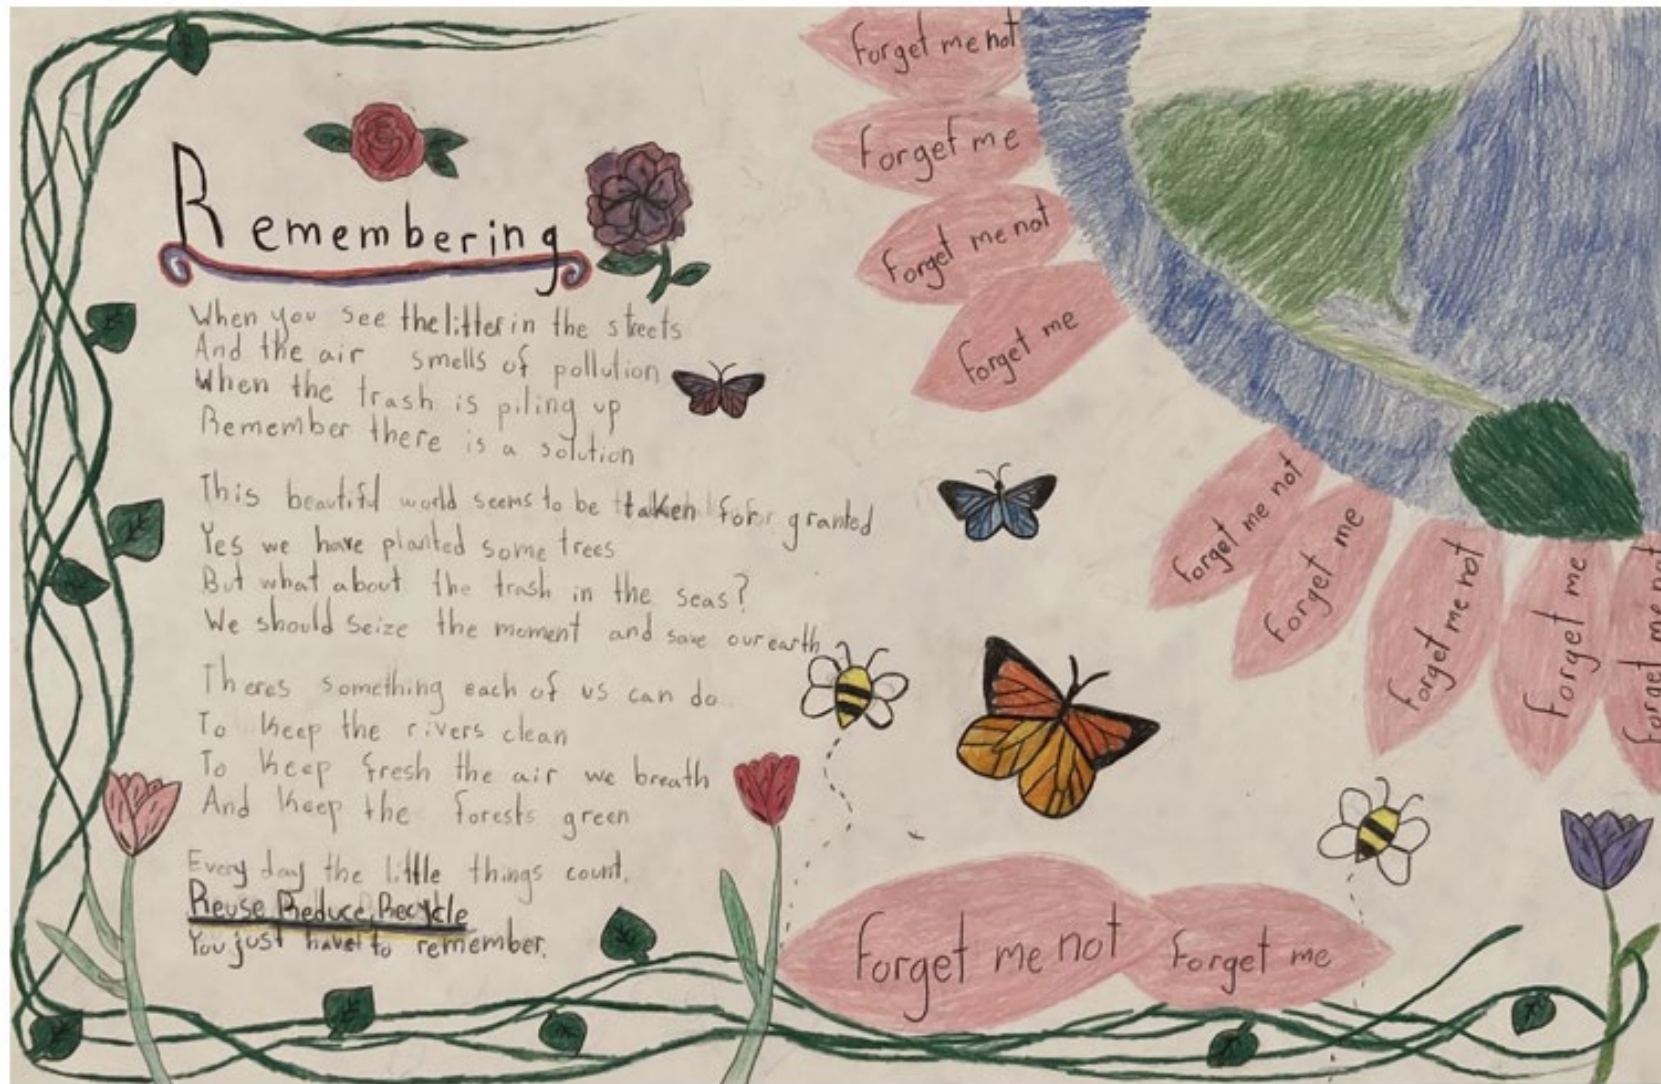 Remembering
When you see the litter in the streets
And the air smells of pollution
When the trash is piling up
Remember there is a solution
This beautiful world seems to be taken for granted
Yes we have planted some trees
But what about the trash in the seas?
We should seize the moment and save our earth
Theres something each of us can do
To keep the rivers clean
To keep fresh the air we breath
And keep the forests green
Every day the little things count.
Reuse, Reduce, Recycle
You just have to remember.
forget me not
forget me
forget me not
forget me
forget me not
forget me
forget me not
forget me
forget me not
forget me not
forget me